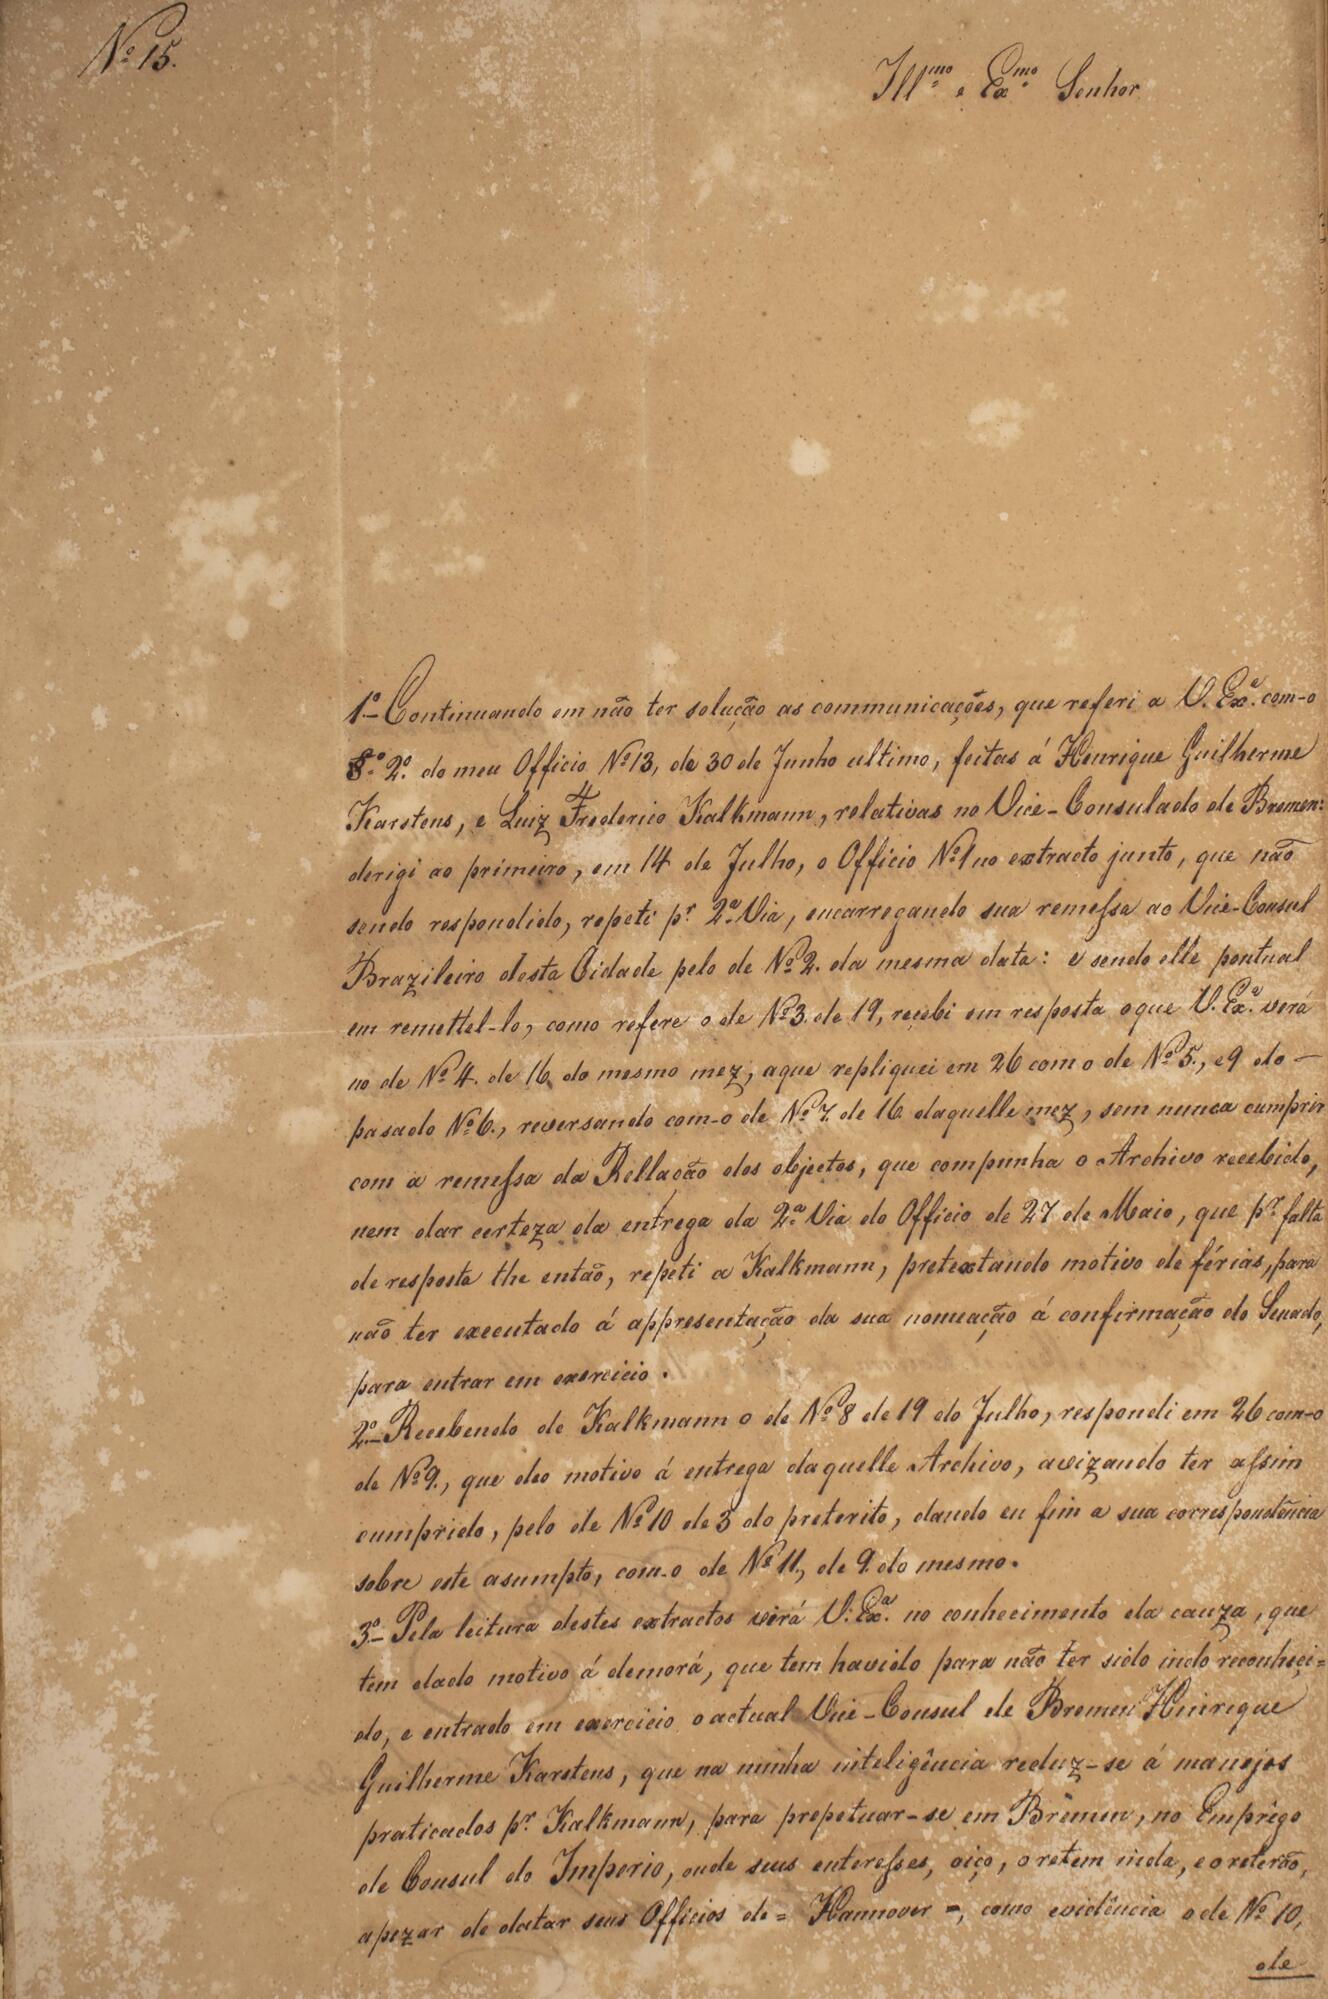 Nº 15.
Illmo e Exmo Senhor
1º- Continuando em não ter solução as communicações, que referi a V. Exª. com-o
§º. 2º. do meu Officio Nº 13, de 30 de Junho ultimo, feitas á Henrique Guilherme
Karstens, e Luiz Frederico Kalkmann, relativas no Vice-Consulado de Bremen:
derigi ao primeiro, em 14 de Julho, o Officio Nº 1 no extracto junto, que não
sendo respondido, repeti pr. 2ª Via, encarregando sua remessa ao Vice-Consul
Brazileiro desta Cidade pelo de Nº 2. da mesma data: e sendo elle pontual
em remettel-lo, como refere o de Nº 3. de 19, recebi em resposta o que V. Exª. verá
no de Nº 4. de 16. do mesmo mez, a que repliquei em 26 com o de Nº 5., e 9 do -
pasado Nº 6., reversando com-o de Nº 7. de 16 daquelle mez, sem nunca cumprir
com a remessa da Rellação dos objectos, que compunha o Archivo recebido,
nem dar certeza da entrega da 2ª Via do Officio de 27 de Maio, que pr. falta
de resposta the então, repeti a Kalkmann, pretextando motivo de férias, para
não ter executado á appresentação da sua nomeação á confirmação do Senado,
para entrar em exercicio.
2º- Recebendo de Kalkmann o de Nº 8 de 19 do Julho, respondi em 26 com-o
de Nº 9., que deo motivo á entrega daquelle Archivo, avizando ter assim
cumprido, pelo de Nº 10 de 3 do preterito, dando eu fim a sua correspondência
sobre este asumpto, com-o de Nº 11, de 9. do mesmo.
3º- Pela leitura destes extractos virá V. Exª. no conhecimento da cauza, que
tem dado motivo á demorá, que tem havido para não ter sido indo reconheci=
do, e entrado em exercicio o actual Vice-Consul de Bremen Hinrique
Guilherme Karstens, que na minha inteligência reduz-se á manejos
praticados pr. Kalkmann, para prepetuar-se em Brêmen, no Emprêgo
de Consul do Imperio, onde seus enteresses, oiço, o retem inda, e o reterão,
apezar de datar seus Officios de = Hannover =, como evidência o de Nº 10,
de